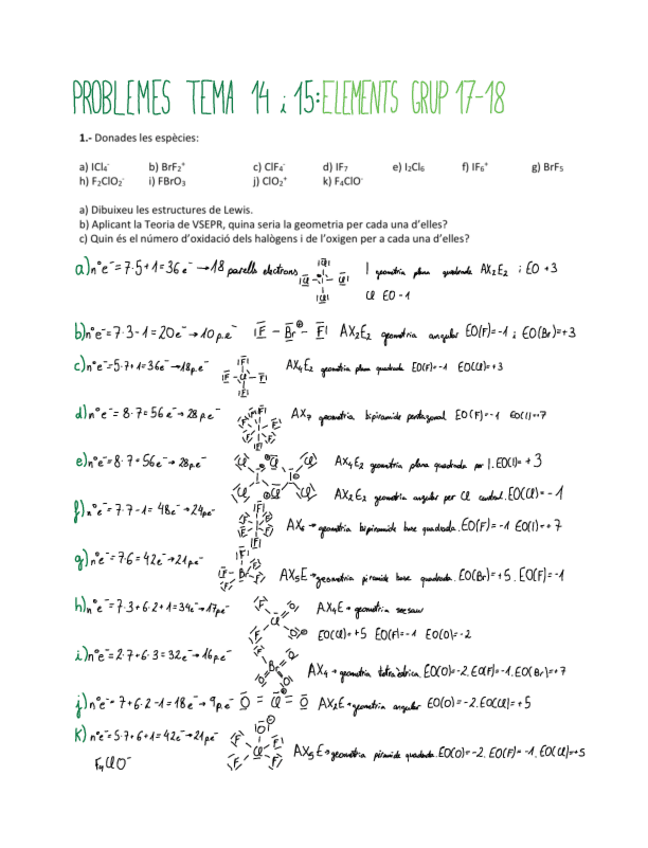 PROBLEMES TEMA 14 i 15: ELEMENTS GRUP 17-18
1.- Donades les espècies:
a) ICl₄⁻ b) BrF₂⁺ c) ClF₄⁻ d) IF₇ e) I₂Cl₆ f) IF₆⁺ g) BrF₅
h) F₂ClO₂⁻ i) FBrO₃ j) ClO₂⁺ k) F₄ClO⁻
a) Dibuixeu les estructures de Lewis.
b) Aplicant la Teoria de VSEPR, quina seria la geometria per cada una d'elles?
c) Quin és el número d'oxidació dels halògens i de l'oxigen per a cada una d'elles?
a) n°e⁻ = 7·5+1 = 36e⁻ → 18 parells electrons I geometria plana quadrada AX₄E₂ ; EO +3
Cl EO -1
b) n°e⁻ = 7·3-1 = 20e⁻ → 10 p.e⁻ F - Br⊕ - F AX₂E₂ geometria angular EO(F)=-1 ; EO(Br)=+3
c) n°e⁻ = 5·7+1 = 36e⁻ → 18p.e⁻ AX₄E₂ geometria plana quadrada EO(F)=-1 EO(Cl)=+3
d) n°e⁻ = 8·7 = 56e⁻ → 28 p.e⁻ AX₇ geometria bipiramide pentagonal EO(F)=-1 EO(I)=+7
e) n°e⁻ = 8·7 = 56e⁻ → 28p.e⁻ AX₄E₂ geometria plana quadrada per I. EO(I)=+3
AX₂E₂ geometria angular per Cl central. EO(Cl)=-1
f) n°e⁻ = 7·7-1 = 48e⁻ → 24p.e⁻ AX₆ → geometria bipiramide base quadrada. EO(F)=-1 EO(I)=+7
g) n°e⁻ = 7·6 = 42e⁻ → 21p.e⁻ AX₅E → geometria piramide base quadrada. EO(Br)=+5. EO(F)=-1
h) n°e⁻ = 7·3+6·2+1 = 34e⁻ → 17p.e⁻ AX₄E → geometria seesaw
EO(Cl)=+5 EO(F)=-1 EO(O)=-2
i) n°e⁻ = 2·7+6·3 = 32e⁻ → 16p.e⁻ AX₄ → geometria tetraèdrica. EO(O)=-2. EO(F)=-1. EO(Br)=+7
j) n°e⁻ = 7+6·2-1 = 18e⁻ → 9p.e⁻ O = Cl⊕ = O AX₂E → geometria angular EO(O)=-2. EO(Cl)=+5
k) n°e⁻ = 5·7+6+1 = 42e⁻ → 21p.e⁻ AX₅E → geometria piramide quadrada. EO(O)=-2. EO(F)=-1. EO(Cl)=+5
F₄ClO⁻